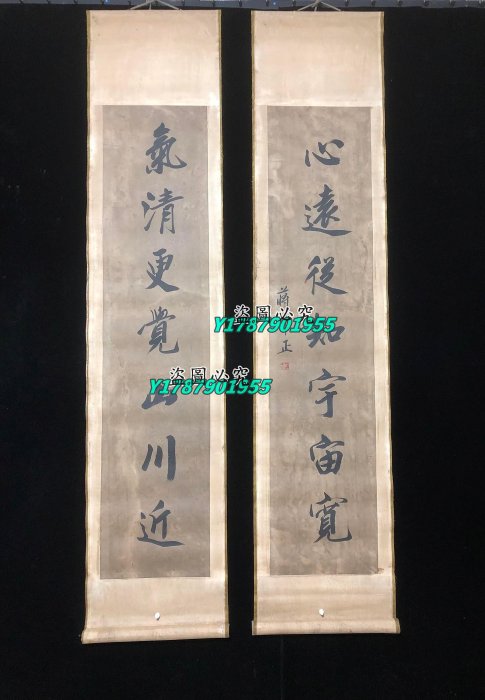 心遠從知宇宙寬
蔣 正
氣清更覺山川近
盜圖必究
Y1787901955
盜圖必究
Y1787901955